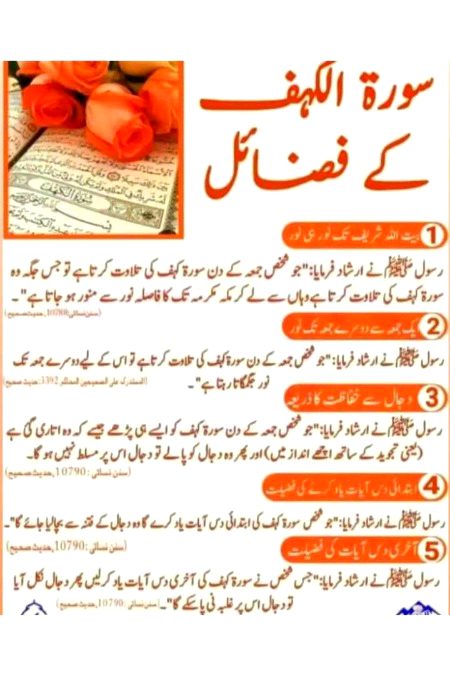 سورۃ الکہف
کے فضائل
1 بیت اللہ شریف تک نور ہی نور
رسول ﷺ نے ارشاد فرمایا:"جو شخص جمعہ کے دن سورۃ کہف کی تلاوت کرتا ہے تو جس جگہ وہ
سورۃ کہف کی تلاوت کرتا ہے وہاں سے لے کر مکہ مکرمہ تک کا فاصلہ نور سے منور ہو جاتا ہے"۔
(سنن نسائی:10788، حدیث صحیح)
2 یک جمعہ سے دوسرے جمعہ تک نور
رسول ﷺ نے ارشاد فرمایا:"جو شخص جمعہ کے دن سورۃ کہف کی تلاوت کرتا ہے تو اس کے لیے دوسرے جمعہ تک
نور جگمگاتا رہتا ہے"۔ (المستدرک علی الصحیحین للحاکم 3392، حدیث صحیح)
3 دجال سے حفاظت کا ذریعہ
رسول ﷺ نے ارشاد فرمایا:"جو شخص جمعہ کے دن سورۃ کہف کو ایسے ہی پڑھے جیسے کہ وہ اتاری گئی ہے
(یعنی تجوید کے ساتھ اچھے انداز میں) اور پھر وہ دجال کو پالے تو دجال اس پر مسلط نہیں ہو گا۔
(سنن نسائی:10790، حدیث صحیح)
4 ابتدائی دس آیات یاد کرنے کی فضیلت
رسول ﷺ نے ارشاد فرمایا:"جو شخص سورۃ کہف کی ابتدائی دس آیات یاد کرے گا وہ دجال کے فتنہ سے بچالیا جائے گا"۔
(سنن نسائی:10790، حدیث صحیح)
5 آخری دس آیات کی فضیلت
رسول ﷺ نے ارشاد فرمایا:"جس شخص نے سورۃ کہف کی آخری دس آیات یاد کرلیں پھر دجال نکل آیا
تو دجال اس پر غلبہ نی پاسکے گا"۔ (سنن نسائی:10790، حدیث صحیح)